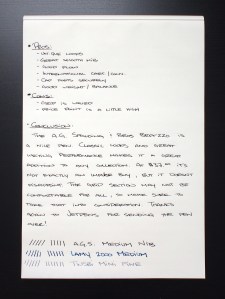 • Pros:
- On the looks
- Great smooth nib
- Good flow
- International cart / con.
- Cap posts securely
- Good weight / balance
• Cons:
- Grip is waxed
- Price point is a little high
• Conclusion:
The A.G. Spalding & Bros
is a nice pen. Classic looks, and great
writing performance makes it a great
addition to any collection. At $ it's
not exactly an buy, but it doesn't
disappoint. The grip section may not be
comfortable for all, so make sure to
take that into consideration. Thanks
again to JetPens for sending the pen
over!
///// ||||| A.G.S. Medium Nib
///// ||||| Lamy 2000 Medium
///// ||||| TWSBI Mini